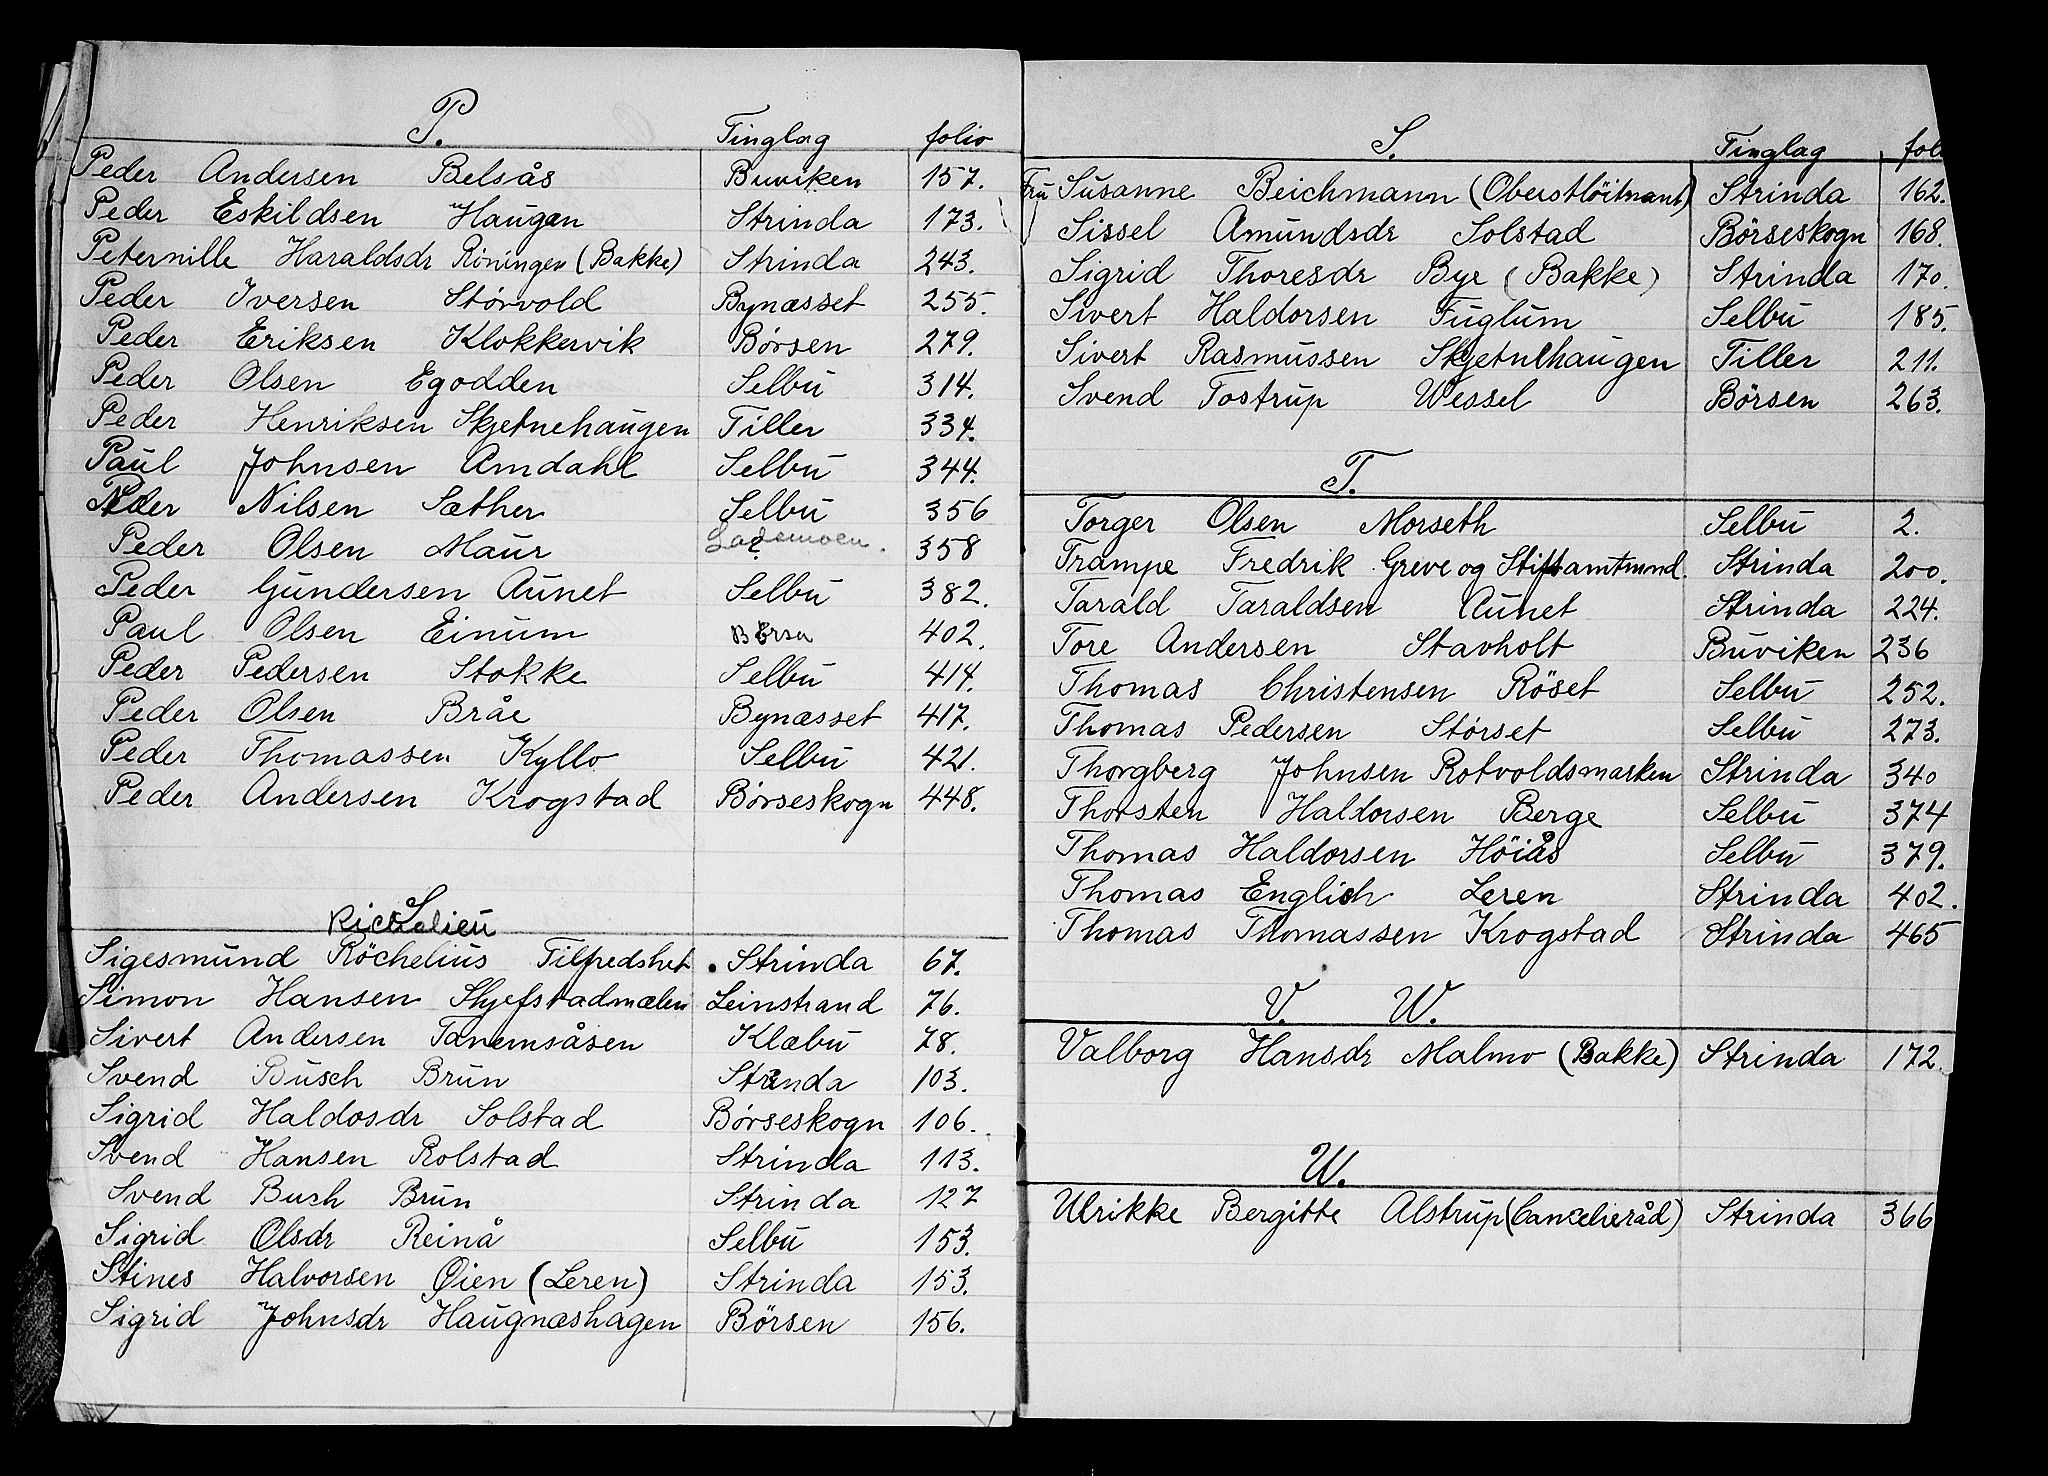 P. Tinglag folio
Peder Andersen Belsås Buviken 157.
Peder Eskildsen Haugan Strinda 173.
Peternille Haraldsdr Röningen (Bakke) Strinda 243.
Peder Iversen Størvold Bynæsset 255.
Peder Eriksen Klokkervik Børsen 279.
Peder Olsen Egodden Selbu 314.
Peder Henriksen Skjetnehaugen Tiller 334.
Paul Johnsen Amdahl Selbu 344.
Peder Nilsen Sæther Selbu 356
Peder Olsen Maur Lademoen. 358
Peder Gundersen Aunet Selbu 382.
Paul Olsen Einum Børsa 402.
Peder Pedersen Stokke Selbu 414.
Peder Olsen Bråe Bynæsset 417.
Peder Thomassen Kyllo Selbu 421.
Peder Andersen Krogstad Börseskogn 448.
S.
Richelieu
Sigesmund Röchelius Tilfredshet Strinda 67.
Simon Hansen Skjefstadmælen Leinstrand 76.
Sivert Andersen Tanemsåsen Klæbu 78.
Svend Busch Brun Strinda 103.
Sigrid Haldosdr Solstad Börseskogn 106.
Svend Hansen Rolstad Strinda 113.
Svend Buch Brun Strinda 127
Sigrid Olsdr Reinå Selbu 153.
Stines Halvorsen Øien (Leren) Strinda 153.
Sigrid Johnsdr Haugnæshagen Börsen 156.
S. Tinglag fol
Fru Susanne Beichmann (Oberstlöitnant) Strinda 162.
Sissel Amundsdr Solstad Börseskogn 168.
Sigrid Thoresdr Bye (Bakke) Strinda 170.
Sivert Haldorsen Fuglum Selbu 185.
Sivert Rasmussen Skjetnehaugen Tiller 211.
Svend Tostrup Wessel Börsen 263.
T.
Torger Olsen Morseth Selbu 2.
Trampe Fredrik Greve og Stiftamtmnd. Strinda 200.
Tarald Taraldsen Aunet Strinda 224.
Tore Andersen Stavholt Buviken 236
Thomas Christensen Röset Selbu 252.
Thomas Pedersen Størset Selbu 273.
Thorgberg Johnsen Rotvoldsmarken Strinda 340
Thorsten Haldorsen Berge Selbu 374
Thomas Haldorsen Höiås Selbu 379.
Thomas English Leren Strinda 402.
Thomas Thomassen Krogstad Strinda 465
V. W.
Valborg Hansdr Malmo (Bakke) Strinda 172.
U.
Ulrikke Bergitte Alstrup (Cancelieråd) Strinda 366